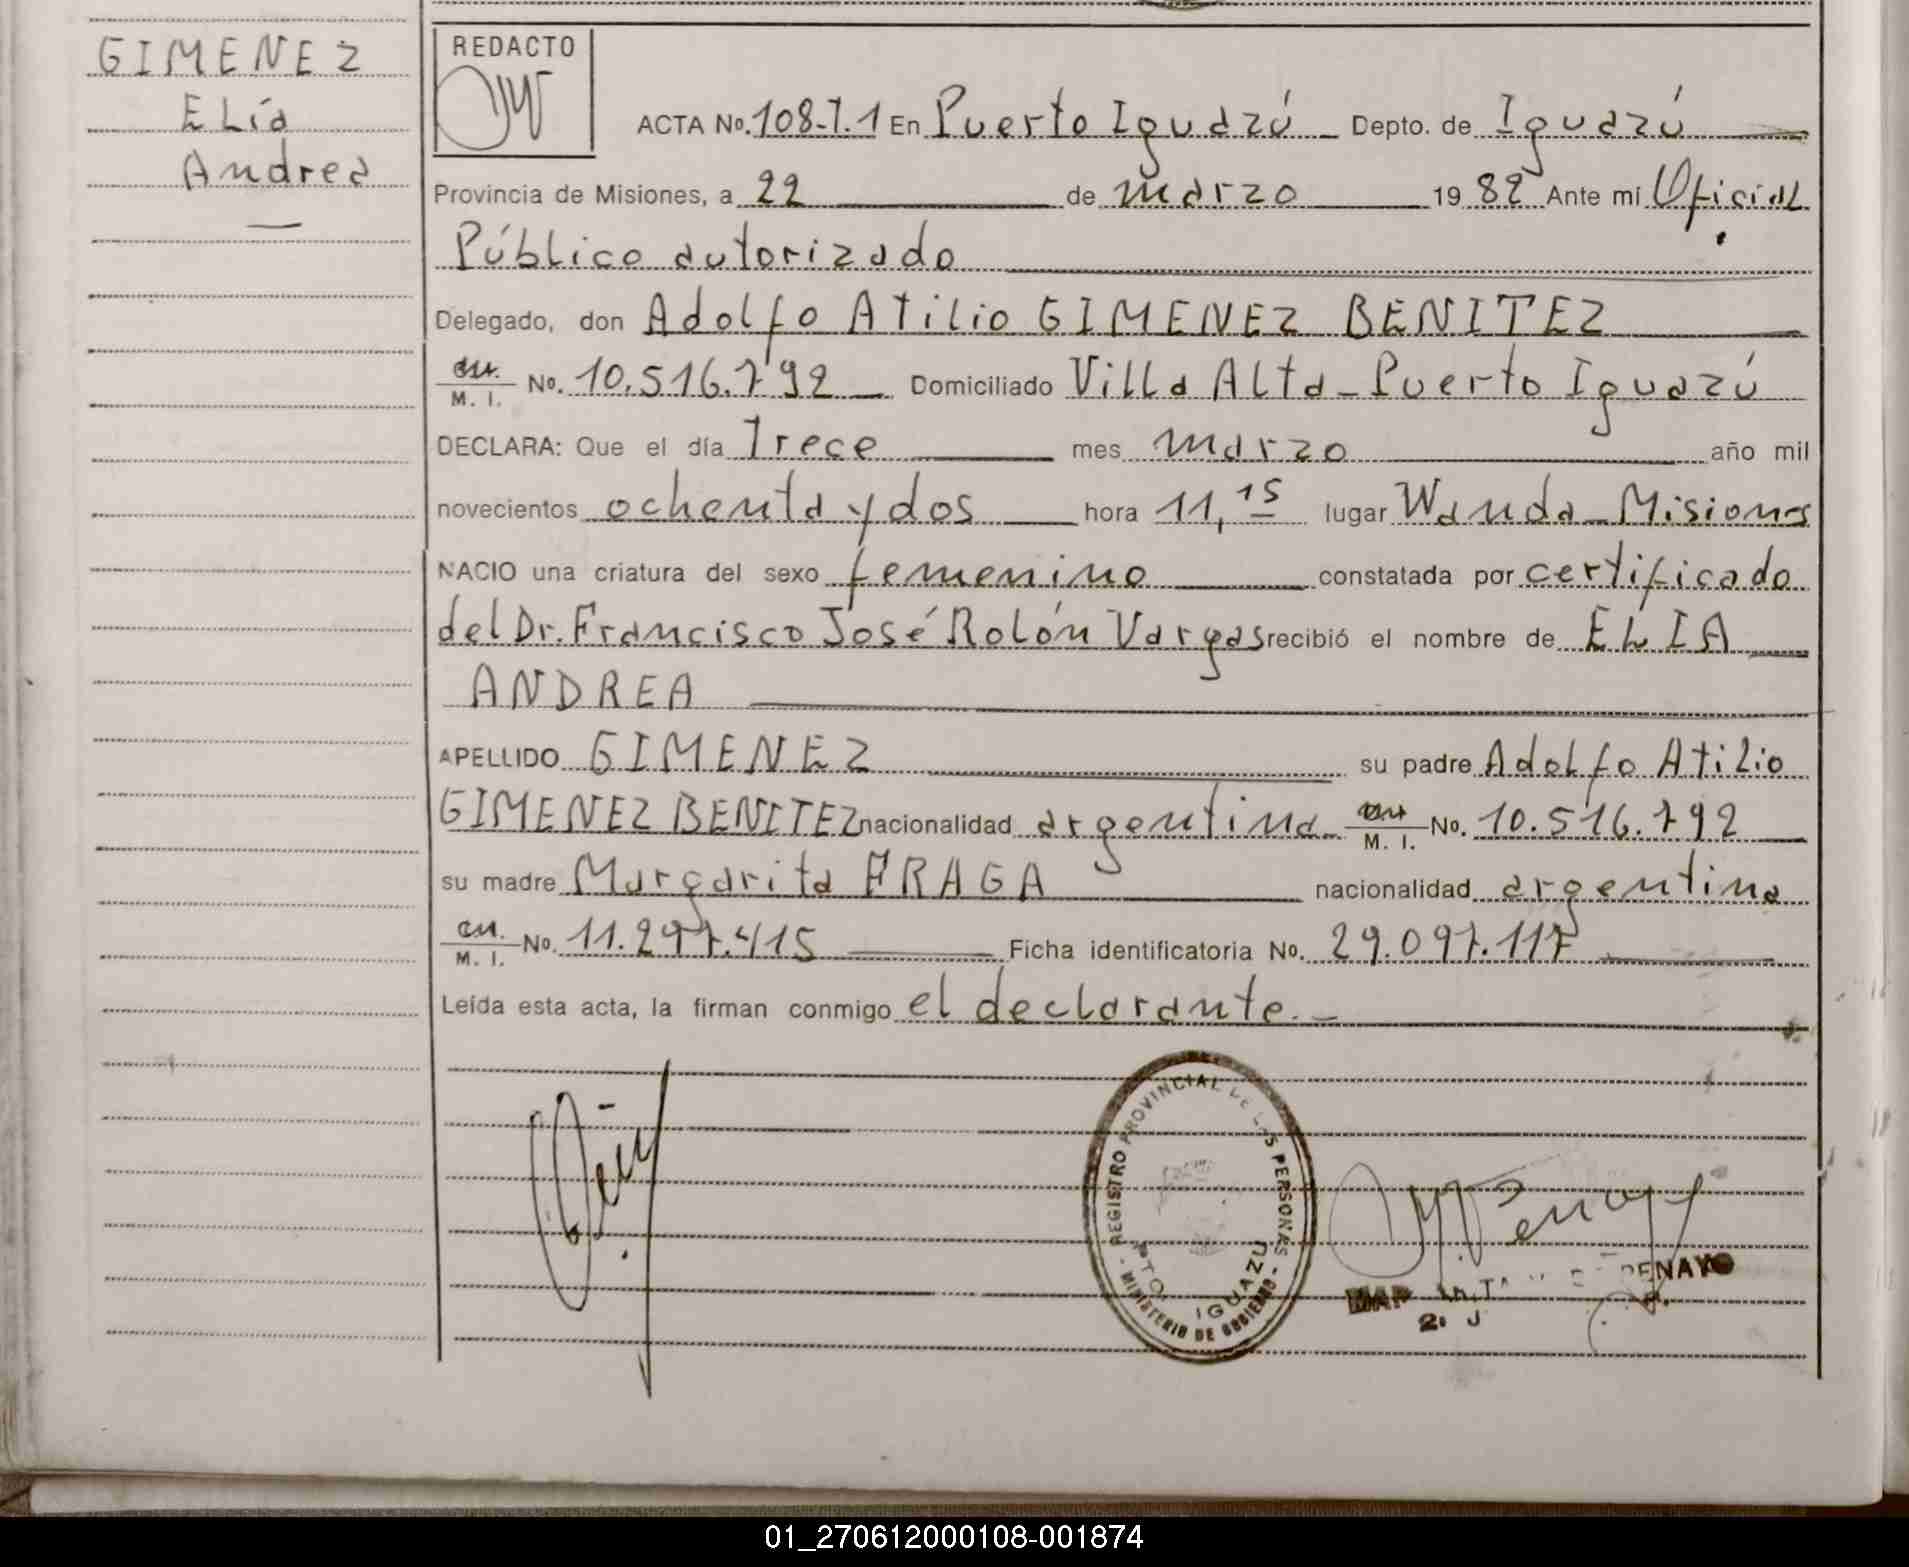 GIMENEZ
ELía
Andrea
REDACTO
ACTA No. 108-T.1 En Puerto Iguazú Depto. de Iguazú
Provincia de Misiones, a 22 de marzo 19 82 Ante mí Oficial
Público autorizado
Delegado, don Adolfo Atilio GIMENEZ BENITEZ
M. I. No. 10.516.792 Domiciliado Villa Alta - Puerto Iguazú
DECLARA: Que el día Trece mes marzo año mil
novecientos ochenta y dos hora 11,15 lugar Wanda - Misiones
NACIO una criatura del sexo femenino constatada por certificado
del Dr. Francisco José Rolón Vargas recibió el nombre de ELIA
ANDREA
APELLIDO GIMENEZ su padre Adolfo Atilio
GIMENEZ BENITEZ nacionalidad argentina M. I. No. 10.516.792
su madre Margarita FRAGA nacionalidad argentina
M. I. No. 11.297.415 Ficha identificatoria No. 29.097.117
Leída esta acta, la firman conmigo el declarante.-
REGISTRO PROVINCIAL DE LAS PERSONAS
PTO. IGUAZU
- MINISTERIO DE GOBIERNO -
PENAYO
01_270612000108-001874